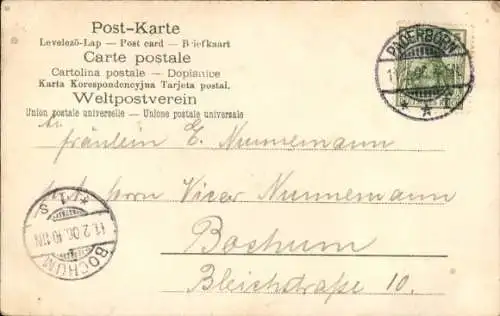 Post-Karte
Levelező-Lap — Post card — Brefkaart
Carte postale
Cartolina postale — Dopisnice
Karta Korespondencyjna Tarjeta postal.
Weltpostverein
Union postale universelle — Unione postale universale
An
Fräulein E. Nunnemann
Herrn Vicar Nunnemann
Bochum
Bleichstraße 10.
PADERBORN
BOCHUM
11.2.06.10-11N